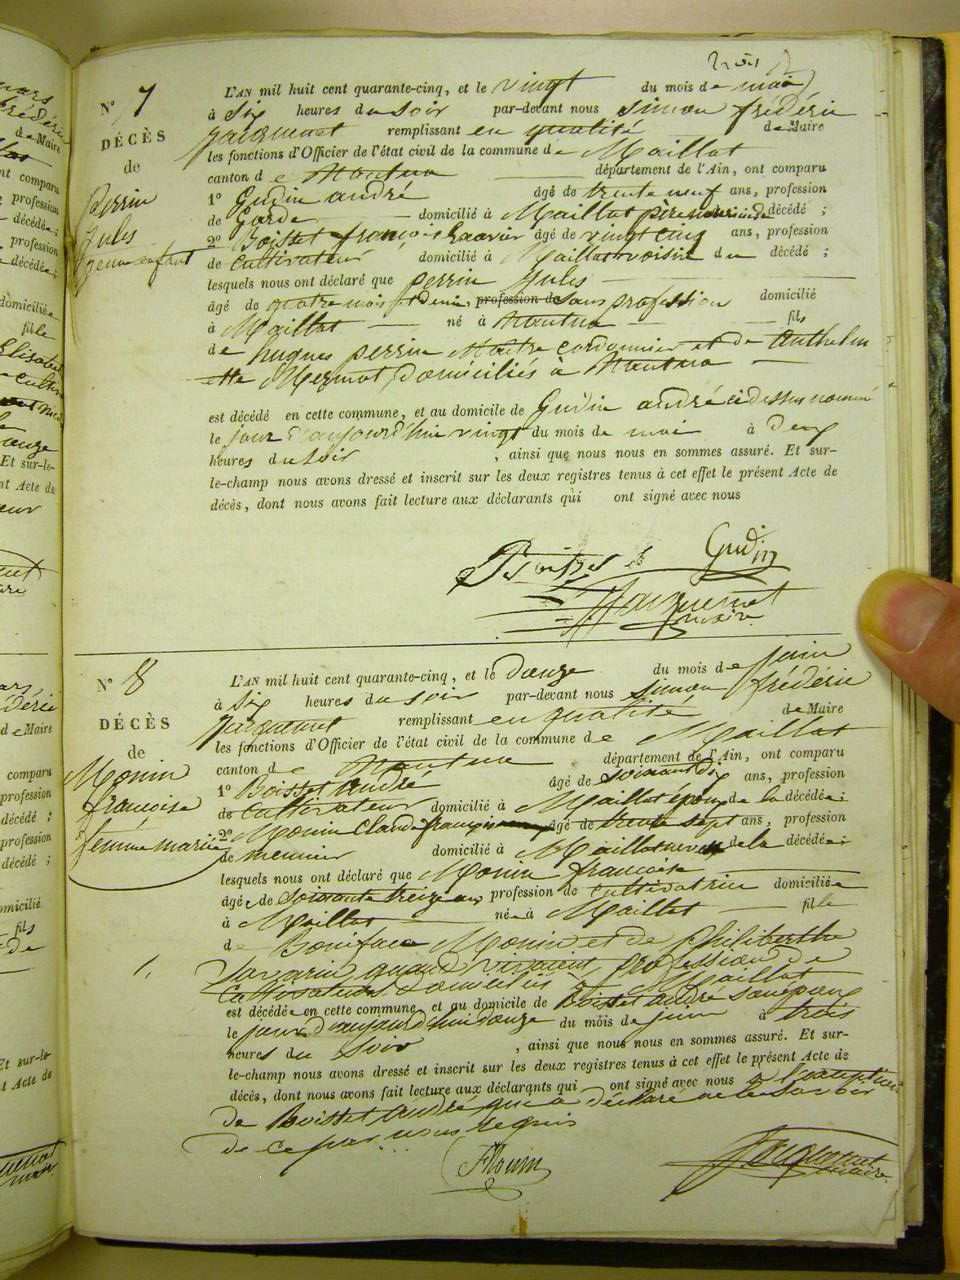 trois
N° 7
DÉCÈS
de
Perrin
Jules
jeune enfant
L'AN mil huit cent quarante-cinq, et le vingt du mois de mai
à Six heures du Soir par-devant nous Simon frédéric
Jacquemet remplissant en qualité de Maire
les fonctions d'Officier de l'état civil de la commune de Maillat
canton de Nantua département de l'Ain, ont comparu
1° Gudin andré âgé de trente neuf ans, profession
de Garde domicilié à Maillat père nourricier décédé ;
2° Boisset françois Xavier âgé de vingt cinq ans, profession
de Cultivateur domicilié à Maillat voisin du décédé ;
lesquels nous ont déclaré que perrin Jules
âgé de quatre mois et demi, profession de Sans profession domicilié
à Maillat né à Nantua fils
de hugues perrin Maître cordonnier et de Anthelm
ette Mermet, domiciliés à Nantua
est décédé en cette commune, et au domicile de Gudin andré ci dessus nommé
le jour d'aujourd'hui vingt du mois de mai à deux
heures du Soir , ainsi que nous nous en sommes assuré. Et sur-
le-champ nous avons dressé et inscrit sur les deux registres tenus à cet effet le présent Acte de
décès, dont nous avons fait lecture aux déclarants qui ont signé avec nous
Boisset Gudin
Jacquemet
maire
N° 8
DÉCÈS
de
Monin
françoise
femme mariée
L'AN mil huit cent quarante-cinq, et le douze du mois de juin
à Six heures du Soir par-devant nous Simon frédéric
Jacquemet remplissant en qualité de Maire
les fonctions d'Officier de l'état civil de la commune de Maillat
canton de Nantua département de l'Ain, ont comparu
1° Boisset André âgé de Soixante dix ans, profession
de Cultivateur domicilié à Maillat époux de la décédée ;
2° Monin Claude françois âgé de trente sept ans, profession
de meunier domicilié à Maillat neveu de la décédée ;
lesquels nous ont déclaré que Monin françoise
âgée de Soixante treize ans profession de Cultivatrice domiciliée
à Maillat née à Maillat fille
de Boniface Monin et de Philiberthe
Savarin quand vivaient, profession de
Cultivateurs domiciliés à Maillat
est décédée en cette commune, et au domicile de Boisset andré Son époux
le jour d'aujourd'hui douze du mois de juin à trois
heures du Soir , ainsi que nous nous en sommes assuré. Et sur-
le-champ nous avons dressé et inscrit sur les deux registres tenus à cet effet le présent Acte de
décès, dont nous avons fait lecture aux déclarants qui ont signé avec nous à l'exception
de Boisset andré qui a déclaré ne le Savoir
de ce par nous requis
Monin Jacquemet
maire